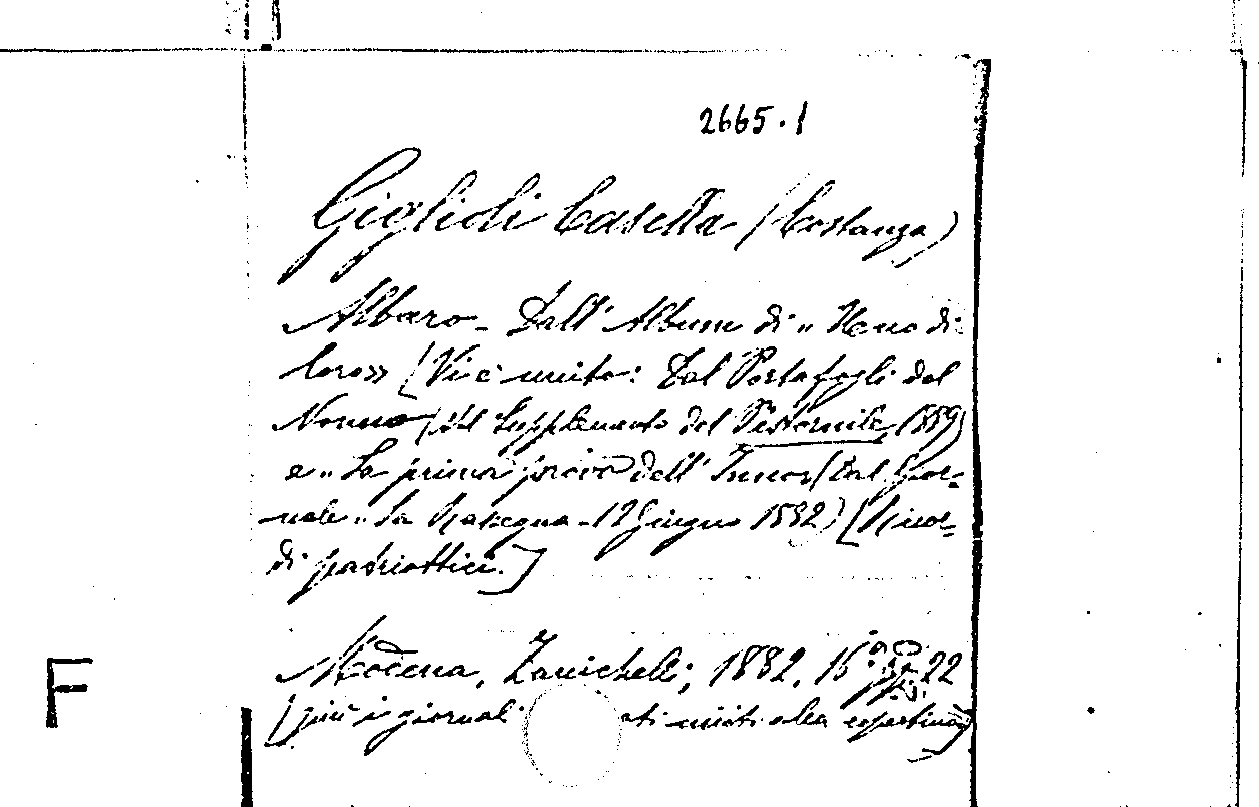 2665.1
Giglioli Casella (Costanza)
Albaro - Dall' Album di „ Uno di
loro» [Vi è unito: Dal Portafogli del
Nonno (Dal Supplemento del 1889)
e „ La prima prova dell' (Dal Gior-
nale „ La Rassegna - 12 Giugno 1882) [Ricor-
di patriottici.]
Modena, Zanichelli, 1882, 16° pp. 22
[più i giornali ati uniti alla copertina]
F